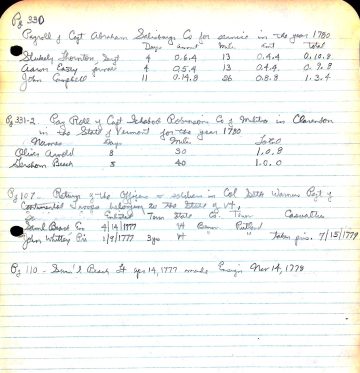 Pg 330
Payroll of Capt Abraham Salisburys Co for service in the year 1780
Days amount Mile amt Total
Stukely Thornton, Sergt 4 0.6.4 13 0.4.4 0.10.8
Aaron Easey private 4 0.5.4 13 0.4.4 0.9.8
John Campbell 11 0.14.8 26 0.8.8 1.3.4
Pg 331-2 Pay Roll of Capt Ichabod Robinson Co of Militia in Clarendon
in the State of Vermont for the year 1780
Names Days Mile Total
Oliver Arnold 8 30 1.0.8
Gershom Beach 5 40 1.0.0
Pg 107 Return of the Officers & soldiers in Col Seth Warner Regt of
Continental Troops belonging to the State of Vt.
Enlisted Term State Co. Town Casualties
Saml Beach En 4/14/1777 Vt Benn Rutland
John Whitley Pri 1/9/1777 3yrs Vt " taken pris. 7/15/1779
Pg 110 - Sam'l Beach Lt apr 14, 1777 made Ensign Nov 14, 1778